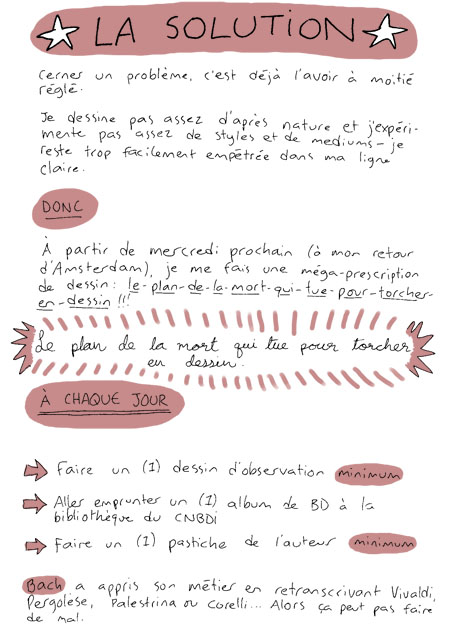 LA SOLUTION
Cerner un problème, c'est déjà l'avoir à moitié
réglé.
Je dessine pas assez d'après nature et j'expéri-
mente pas assez de styles et de mediums - je
reste trop facilement empêtrée dans ma ligne
claire.
DONC
À partir de mercredi prochain (à mon retour
d'Amsterdam), je me fais une méga-prescription
de dessin: le-plan-de-la-mort-qui-tue-pour-torcher-
en-dessin !!!
Le plan de la mort qui tue pour torcher
en dessin.
À CHAQUE JOUR
Faire un (1) dessin d'observation minimum
Aller emprunter un (1) album de BD à la
bibliothèque du CNBDI
Faire un (1) pastiche de l'auteur minimum
Bach a appris son métier en retranscrivant Vivaldi,
Pergolèse, Palestrina ou Corelli... Alors ça peut pas faire
de mal.